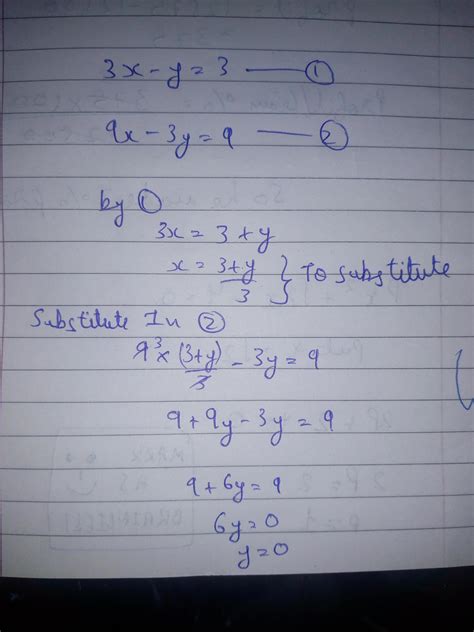 3x - y = 3 —— ①
9x - 3y = 9 —— ②
by ①
3x = 3 + y
x = 3+y/3 } To substitute
Substitute In ②
9³ x (3+y)/3 - 3y = 9
9 + 9y - 3y = 9
9 + 6y = 9
6y = 0
y = 0